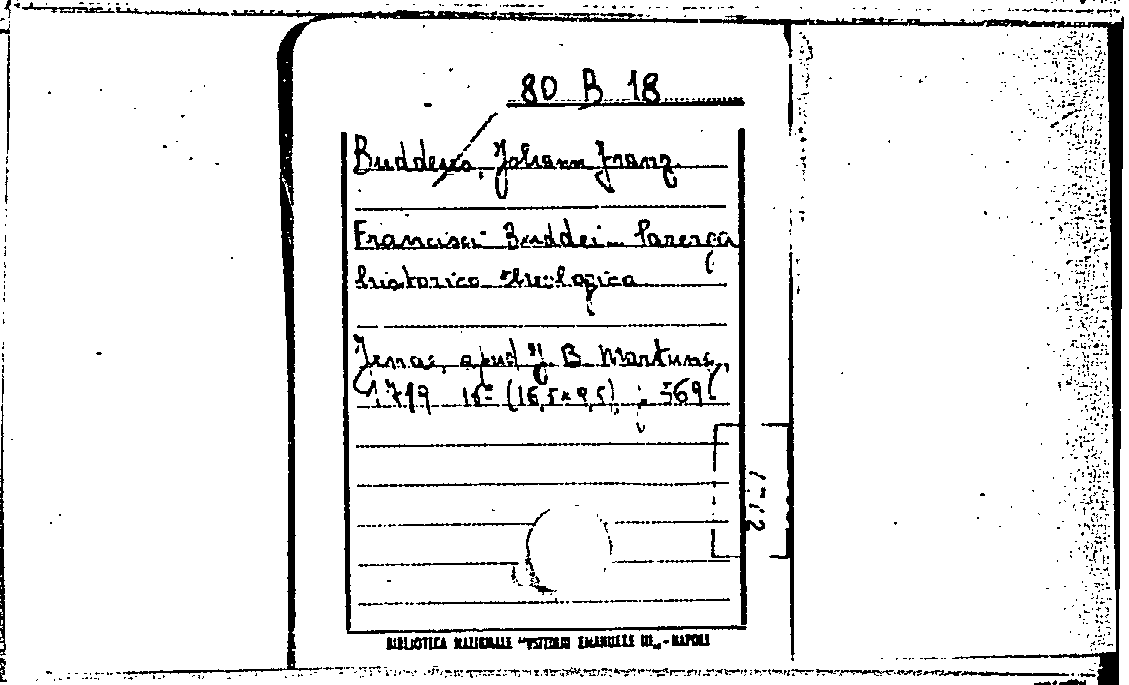 80 B 18
Buddeus, Johann Franz.
Francisci Buddei... Parerga
historico theologica
Jenae, apud J. B. Martium,
1719 16° (16,5x9,5) p. 569
BIBLIOTECA NAZIONALE "VITTORIO EMANUELE III" - NAPOLI